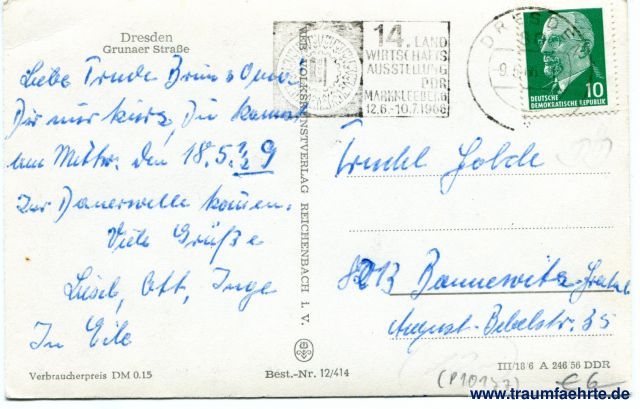 Dresden
Grunaer Straße
Liebe Trude
Dir nur kurz, Du kannst
am Mittw. den 18.5. 9
zur Dauerwelle kommen.
Viele Grüße
Liesel, Ott, Inge
In Eile
Verbraucherpreis DM 0.15
Best.-Nr. 12/414
VEB VOLKSKUNSTVERLAG REICHENBACH i. V.
14. LAND
WIRTSCHAFTS
AUSSTELLUNG
DDR
MARKKLEEBERG
12.6.-10.7.1966
DRESD
10
DEUTSCHE
DEMOKRATISCHE REPUBLIK
Trudel
8213 Bannewitz
August-Bebelstr. 35
III/18/6 A 246 56 DDR
(P10137)
€ 6
www.traumfaehrte.de